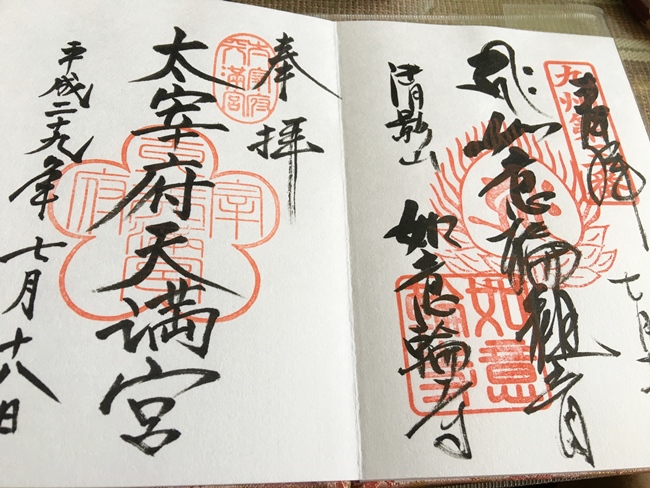 奉拝
七月
如意輪観音
清影山 如意輪寺
如意輪寺
奉拝
太宰府天満宮
太宰府天満宮
平成二十九年七月十八日